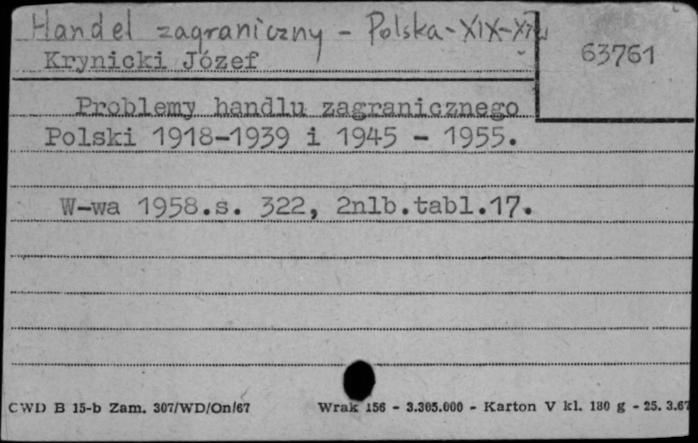 Handel zagraniczny - Polska - XIX-XX w
63761
Krynicki Józef
Problemy handlu zagranicznego
Polski 1918-1939 i 1945 - 1955.
W-wa 1958.s. 322, 2nlb.tabl.17.
CWD B 15-b Zam. 307/WD/On/67 Wrak 156 - 3.305.000 - Karton V kl. 180 g - 25. 3.67